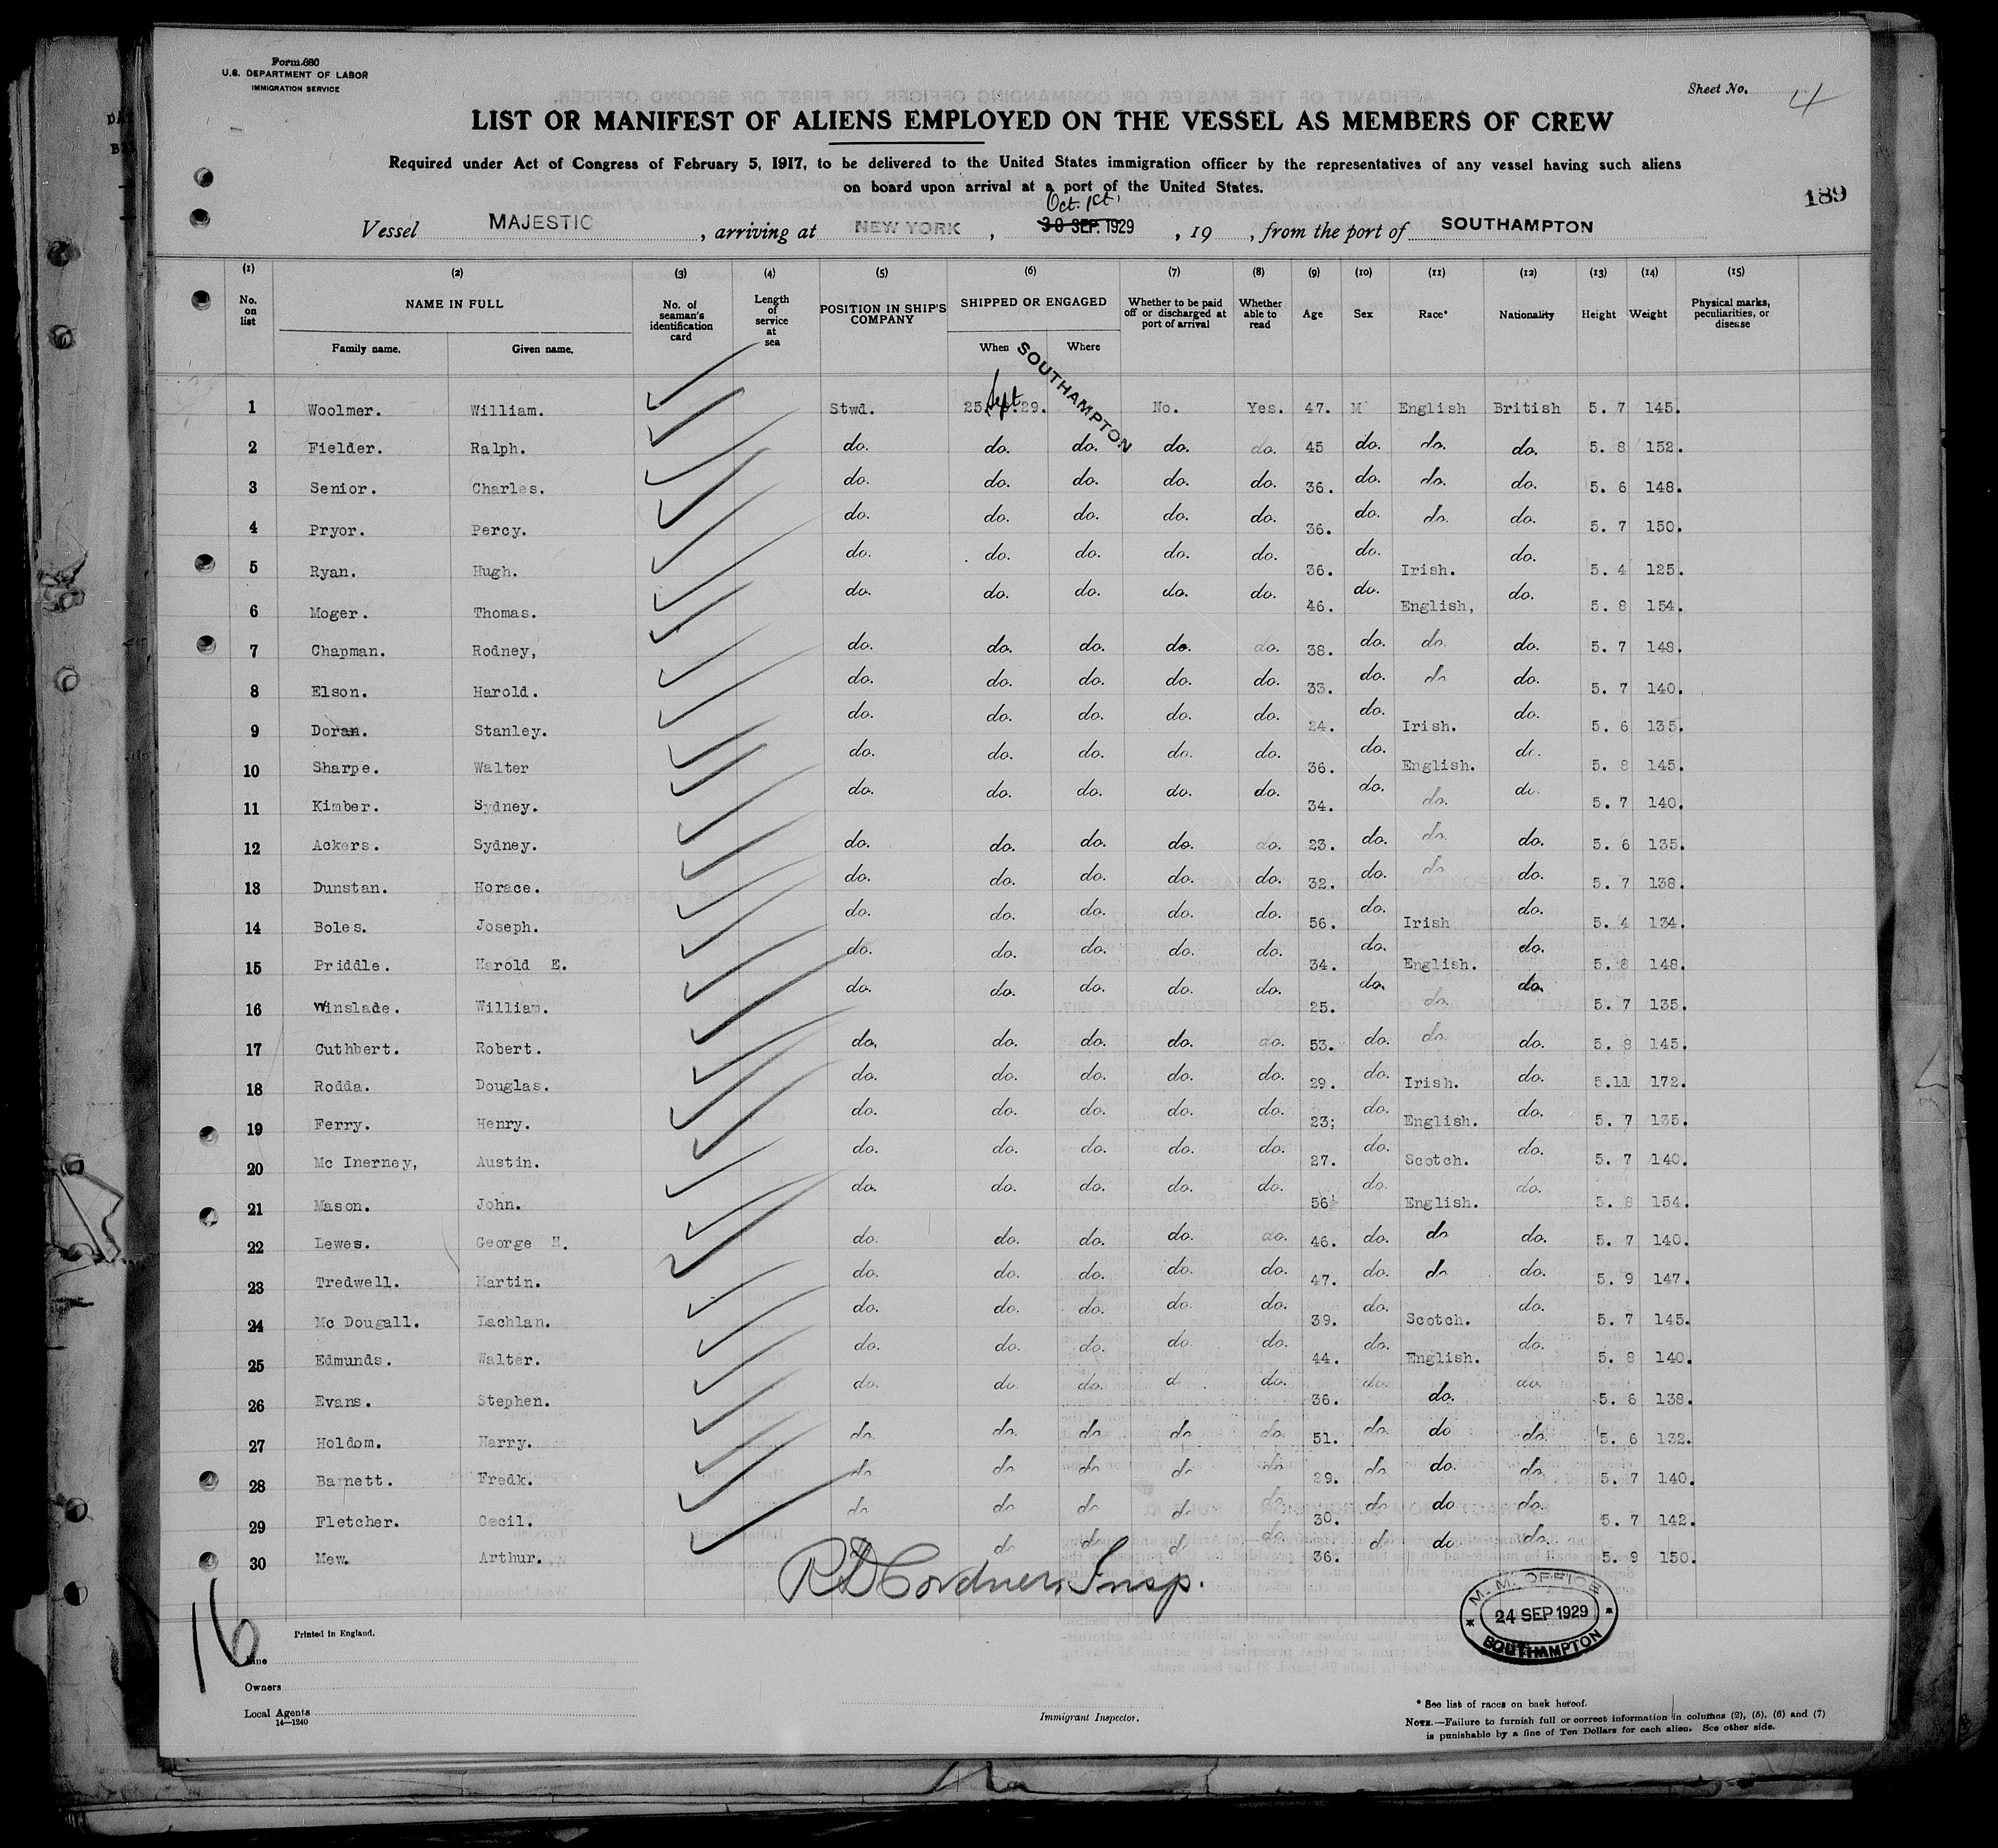 Form 680
U.S. DEPARTMENT OF LABOR
IMMIGRATION SERVICE
Sheet No. 4
LIST OR MANIFEST OF ALIENS EMPLOYED ON THE VESSEL AS MEMBERS OF CREW
Required under Act of Congress of February 5, 1917, to be delivered to the United States immigration officer by the representatives of any vessel having such aliens
on board upon arrival at a port of the United States.
189
Oct. 1st.
Vessel MAJESTIC, arriving at NEW YORK, 30 SEP. 1929, 19, from the port of SOUTHAMPTON
(1) (2) (3) (4) (5) (6) (7) (8) (9) (10) (11) (12) (13) (14) (15)
No. on list NAME IN FULL No. of seaman's identification card Length of service at sea POSITION IN SHIP'S COMPANY SHIPPED OR ENGAGED Whether to be paid off or discharged at port of arrival Whether able to read Age Sex Race* Nationality Height Weight Physical marks, peculiarities, or disease
Family name. Given name. When Where
SOUTHAMPTON
1 Woolmer. William. Stwd. 25. Sept. 29. No. Yes. 47. M English British 5. 7 145.
2 Fielder. Ralph. do. do. do. do. do. 45 do. do. do. 5. 8 152.
3 Senior. Charles. do. do. do. do. do. 36. do. do. do. 5. 6 148.
4 Pryor. Percy. do. do. do. do. do. 36. do. do. do. 5. 7 150.
5 Ryan. Hugh. do. do. do. do. do. 36. do. Irish. do. 5. 4 125.
6 Moger. Thomas. do. do. do. do. do. 46. do. English, do. 5. 8 154.
7 Chapman. Rodney, do. do. do. do. do. 38. do. do. do. 5. 7 148.
8 Elson. Harold. do. do. do. do. do. 33. do. do do. 5. 7 140.
9 Doran. Stanley. do. do. do. do. do. 24. do. Irish. do. 5. 6 135.
10 Sharpe. Walter do. do. do. do. do. 36. do. English. do. 5. 8 145.
11 Kimber. Sydney. do. do. do. do. do. 34. do. do. do. 5. 7 140.
12 Ackers. Sydney. do. do. do. do. do. 23. do. do. do. 5. 6 135.
13 Dunstan. Horace. do. do. do. do. do. 32. do. do do. 5. 7 138.
14 Boles. Joseph. do. do. do. do. do. 56. do. Irish do. 5. 4 134.
15 Priddle. Harold E. do. do. do. do. do. 34. do. English. do. 5. 8 148.
16 Winslade. William. do. do. do. do. do. 25. do. do. do. 5. 7 135.
17 Cuthbert. Robert. do. do. do. do. do. 53. do. do. do. 5. 8 145.
18 Rodda. Douglas. do. do. do. do. do. 29. do. Irish. do. 5.11 172.
19 Ferry. Henry. do. do. do. do. do. 23; do. English. do. 5. 7 135.
20 Mc Inerney, Austin. do. do. do. do. do. 27. do. Scotch. do. 5. 7 140.
21 Mason. John. do. do. do. do. do. 56 do. English. do. 5. 8 154.
22 Lewes. George H. do. do. do. do. do. 46. do. do do. 5. 7 140.
23 Tredwell. Martin. do. do. do. do. do. 47. do. do do. 5. 9 147.
24 Mc Dougall. Lachlan. do. do. do. do. do. 39. do. Scotch. do. 5. 7 145.
25 Edmunds. Walter. do. do. do. do. do. 44. do. English. do. 5. 8 140.
26 Evans. Stephen. do. do. do. d. do. 36. do. do. do. 5. 6 138.
27 Holdom. Harry. do. do. do do do. 51. do. do do. 5. 6 132.
28 Barnett. Fredk. do do do do do 29. do do. do. 5. 7 140.
29 Fletcher. Cecil. do do do do do. 30. do do do. 5. 7 142.
30 Mew. Arthur. do do do do 36. do do do. 5. 9 150.
RD Cordner Insp.
M. M. OFFICE
24 SEP 1929
SOUTHAMPTON
16
Printed in England.
Line
Owners
Local Agents
14—1240
Immigrant Inspector.
* See list of races on back hereof.
NOTE.—Failure to furnish full or correct information in columns (2), (5), (6) and (7)
is punishable by a fine of Ten Dollars for each alien. See other side.